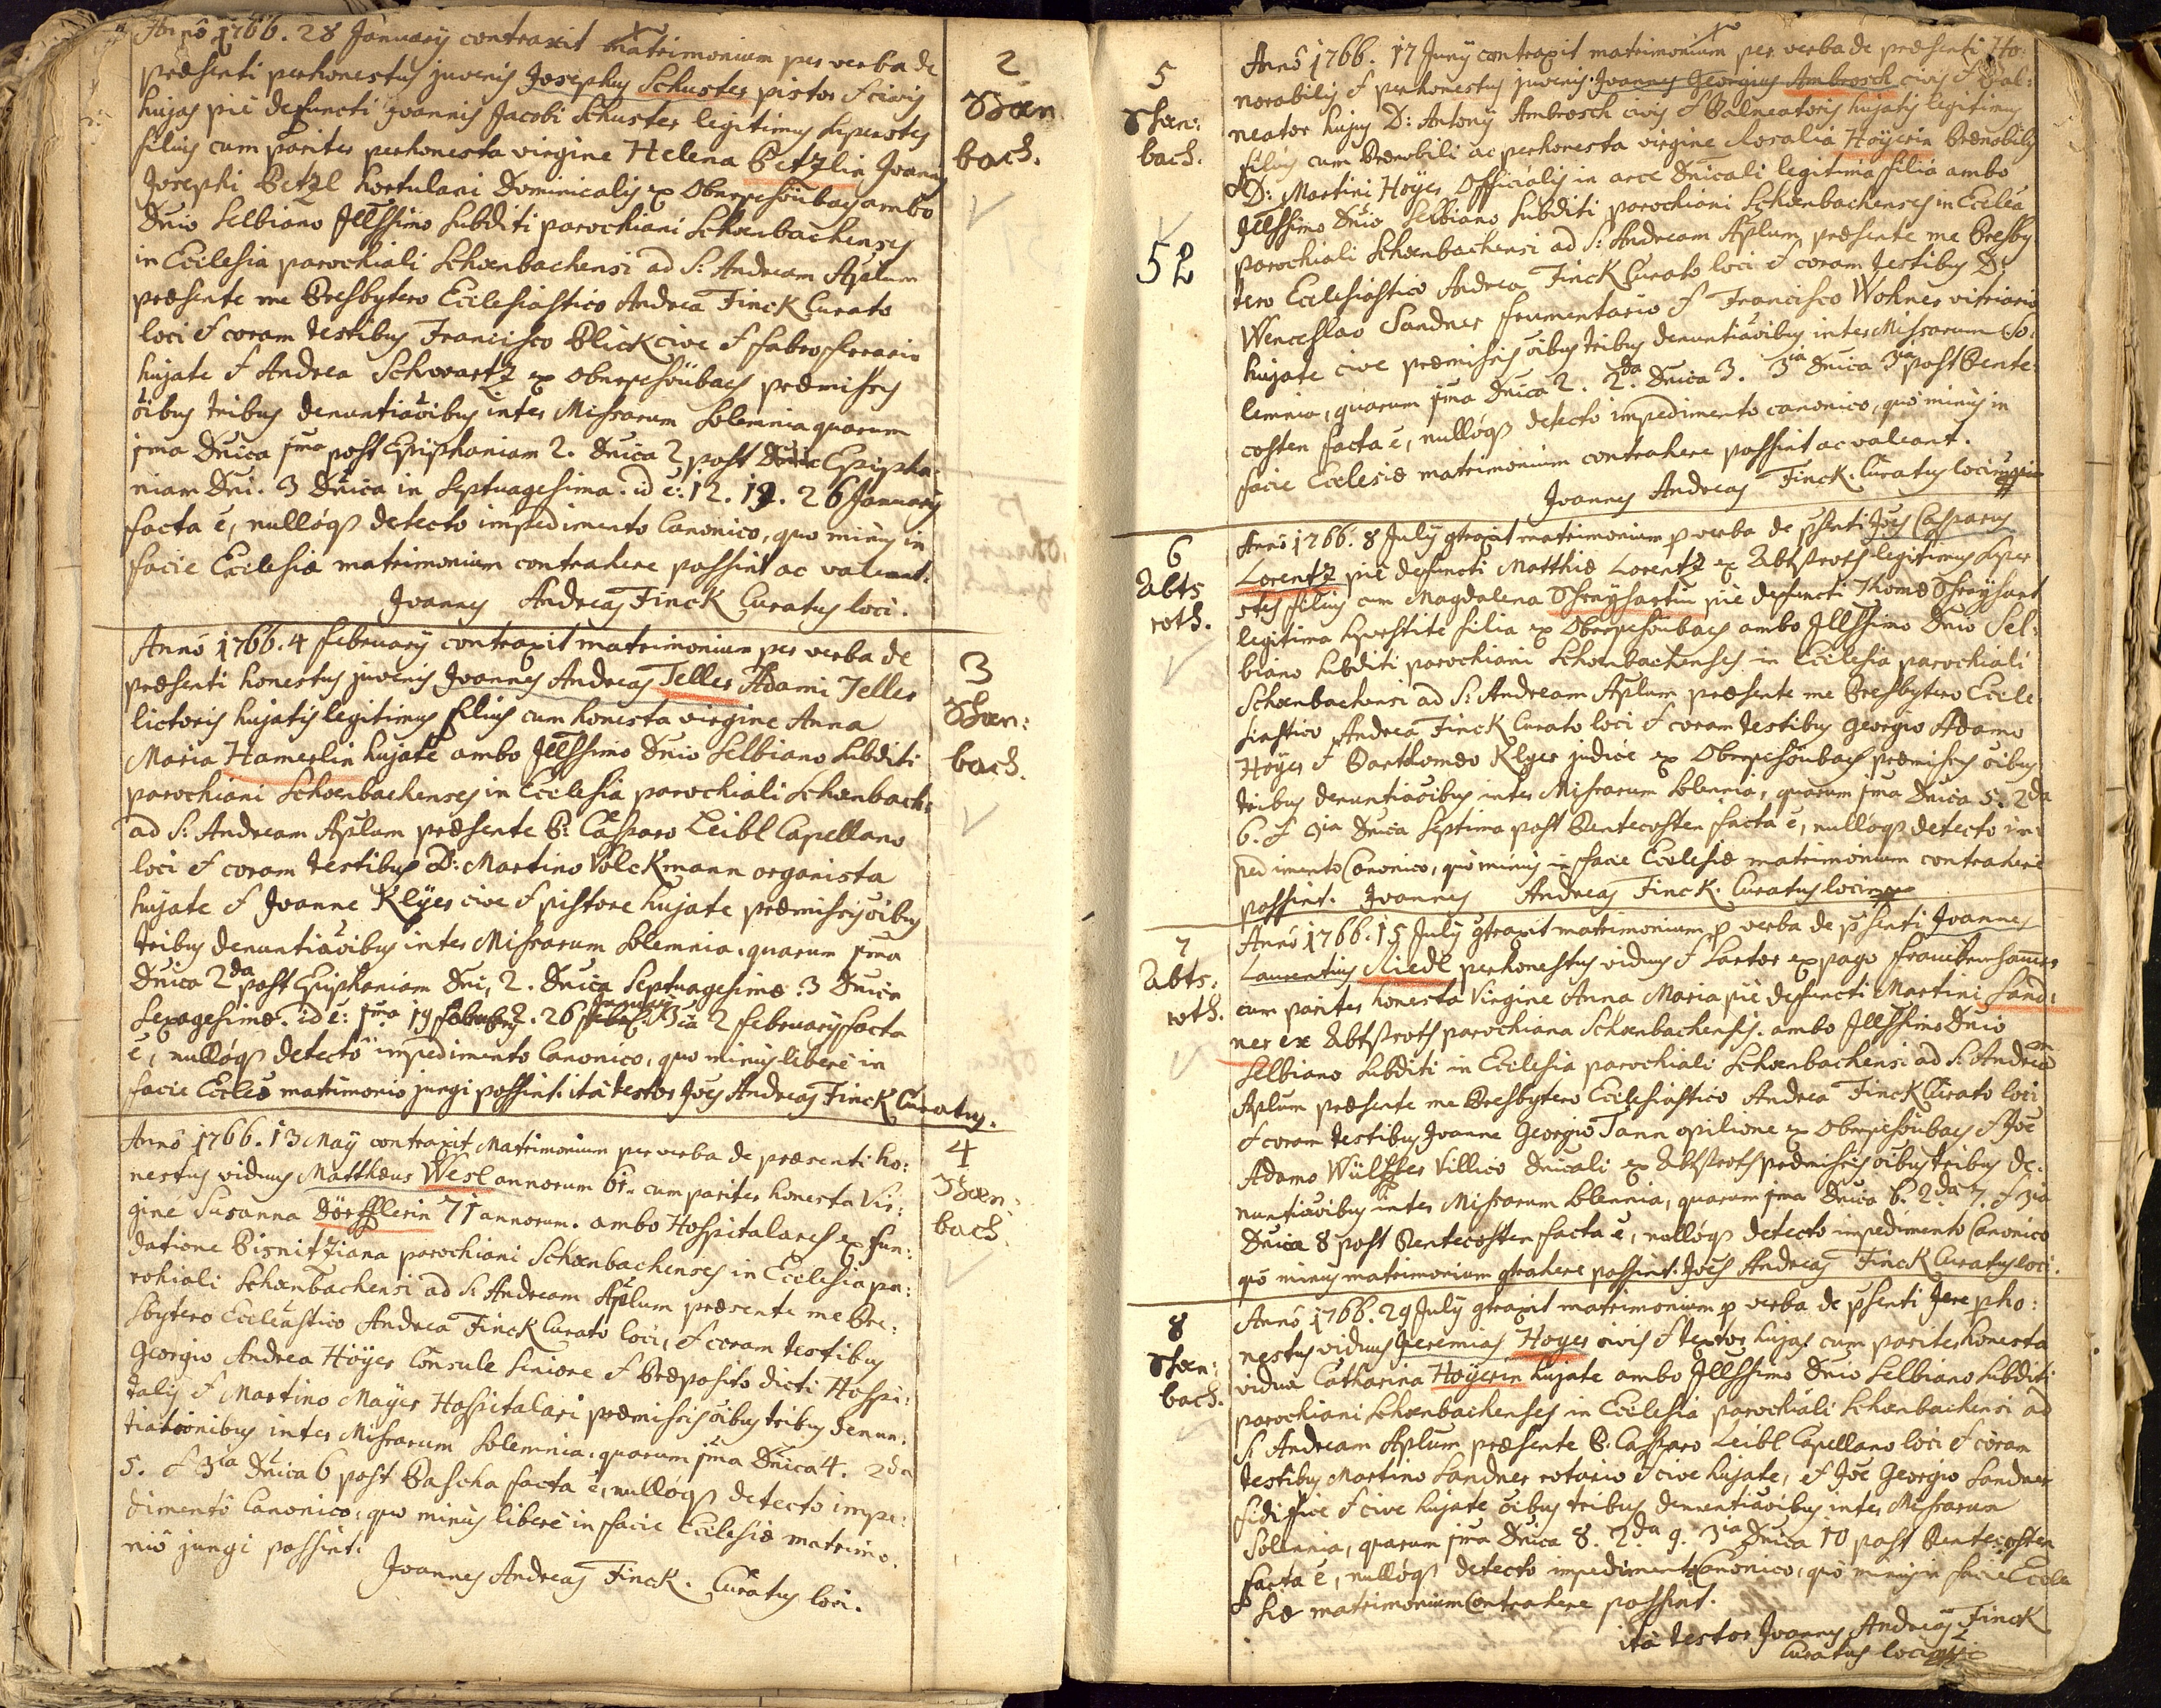 Annô 1766. 28 January contraxit matrimonium per verba de
præsenti perhonestus juvenis Josephus Schuster pistor & civis
hujas piè defuncti Joannis Jacobi Schuster legitimus superstes
filius cum pariter perhonesta virgine Helena Betzlin Joannis
Josephi Betzl hortulani Dominicalis ex Oberschönbach ambo
Dnio Selbiano Jllssimo subditi parochiani Schœnbachenses
in Ecclesia parochiali Schœnbachensi ad S: Andream Aplum
præsente me Presbytero Ecclesiastico Andrea Finck Curato
loci & coram testibus Francisco Plick cive & fabro ferrario
hujate & Andrea Schwartz ex Oberschönbach præmissis
õibus tribus denuntiãoibus inter Missarum solemnia quarum
1ma Dnica 1ma post Epiphaniam 2. Dnica 2 post Epipha:
niam Dni. 3 Dnica in Septuagesima. id ẽ: 12. 19. 26 January
facta ẽ, nullóq3 detecto impedimento Canonico, quo minus in
facie Ecclesiæ matrimonium contrahere possint ac valeant.
Joannes Andreas Finck Curatus loci.
2
Schœn
bach.
Annô 1766. 4 February contraxit matrimonium per verba de
præsenti honestus juvenis Joannes Andreas Teller Adami Teller
lictoris hujatis legitimus filius cum honesta virgine Anna
Maria Hamerlin hujate ambo Jllssimo Dnio Selbiano subditi
parochiani Schœnbachenses in Ecclesia parochiali Schœnbach:
ad S: Andream Aplum præsente P: Casparo Leibl Capellano
loci & coram testibus D: Martino Volckmann organista
hujate & Joanne Klÿer cive & pistore hujate præmissis õibus
tribus denuntiãoibus inter Missarum solemnia, quarum 1ma
Dnica 2da post Epiphaniam Dni, 2. Dnica Septuagesimæ. 3 Dnica
Sexagesimæ. id ẽ: 1ma 19 2. 26 January 3ia 2 February facta
ẽ, nullóq3 detectô impedimento Canonico, quo minus liberè in
facie Eccles matrimonio jungi possint. ità testor Joes Andreas Finck Curatus.
3
Schœn:
bach.
Annô 1766. 13 Maÿ contraxit Matrimonium per verba de præsenti ho:
nestus viduus Matthæus Wesl annorum 61. cum pariter honesta Vir:
gine Susanna Dörfflerin 71 annorum. ambo Hospitalares ex fun:
datione Bisnitziana parochiani Schœnbachenses in Ecclesia pa:
rohiali Schœnbachensi ad S: Andream Aplum præsente me Pre:
sbytero Eccleastico Andrea Finck Curato loci, & coram testibus
Georgio Andrea Höÿer Consule seniore & Præposito dicti Hospi:
talis & Martino Maÿer Hospitalari præmissis õibus tribus denun:
tiationibus inter Missarum solemnia, quarum 1ma Dnica 4. 2da
5. & 3ia Dnica 6 post Pascha facta ẽ, nullóq3 detecto impe:
dimentô Canonico, quo minus liberè in facie Ecclesiæ matrimo:
niô jungi possint.
Joannes Andreas Finck. Curatus loci.
4
Schœn:
bach
5
Schœn:
bach.
52
Annô 1766. 17 Junÿ contraxit matrimonium per verba de præsenti Ho:
norabilis & perhonestus juvenis Joannes Georgius Ambrosch civis & Bal:
neator hujus D: Antonÿ Ambrosch civis & Balneatoris hujatis legitimus
filius cum Prænobili ac perhonesta virgine Rosalia Höÿerin Prænobilis
D: Martini Höÿer Officialis in arce Dnicali legitima filia ambo
Jllssimo Dnio Selbiano subditi parochiani Schœnbachenses in Ecclea
parochiali Schœnbachensi ad S: Andream Aplum præsente me Presby
tero Ecclesiastico Andrea Finck Curato loci & coram testibus D:
Wenceslao Sandner frumentario & Francisco Wohner vitriario
hujate cive præmissis õibus tribus denuntiãoibus inter Missarum So:
lemnia, quarum 1ma Dnica 2. 2da Dnica 3. 3ia Dnica 3ia post Pente:
costen facta ẽ, nullóq3 detecto impedimento canonico, quô minus in
facie Ecclesiæ matrimonium contrahere possint ac valeant.
Joannes Andreas Finck. Curatus loci mppia
6
Abts
roth.
Annô 1766. 8 Julÿ gtraxit matrimonium p verba de psenti Joes Casparus
Lorentz piè defuncti Matthiæ Lorentz ex Abtsroth legitimus super
stes filius cum Magdalena piè defuncti Thomæ
legitima superstite filia ex Oberschönbach ambo Jllssimo Dnio Sel:
biano subditi parochiani Schœnbachenses in Ecclesia parochiali
Schœnbachensi ad S: Andream Aplum præsente me Presbytero Eccle
siastico Andrea Finck Curato loci & coram testibus Georgio Adamo
Höÿer & Bartholomæo Klyer judice ex Oberschönbach præmissis õibus
tribus denuntiãoibus inter Missarum solemnia, quarum 1ma Dnica 5. 2da
6. & 3ia Dnica septima post Pentecosten facta ẽ, nullóq3 detecto im
pedimento Canonico, quò minus in facie Ecclesiæ matrimonium contrahere
possint. Joannes Andreas Finck. Curatus loci mpp
7
Abts:
roth.
Annô 1766. 15 Julÿ gtraxit matrimonium p verba de psenti Joannes
Laurentius Riedl perhonestus viduus & sartor ex pago
cum pariter honesta Virgine Anna Maria piè defuncti Martini Sand:
ner ex Abtsroth parochiana Schœnbachensis. ambo Jllssimo Dnio
Selbiano subditi in Ecclesia parochiali Schœnbachensi ad S: Andream
Aplum præsente me Presbytero Ecclesiastico Andrea Finck Curato loci
& coram testibus Joanne Georgio Tann opilione ex Oberschönbach & Joe
Adamo Wülfer Villico Dnicali ex Abtsroth præmissis õibus tribus de:
nuntiãoibus inter Missarum solemnia, quarum 1ma Dnica 6. 2da 7. & 3ia
Dnica 8 post Pentecosten facta ẽ, nullóq3 detecto impedimento Canonico
quò minus matrimonium gtrahere possint. Joes Andreas Finck Curatus loci.
8
Schœn:
bach.
Annô 1766. 29 Julÿ gtraxit matrimonium p verba de psenti pho:
nestus viduus Jeremias Hoyer civis & textor hujas cum pariter honesta
vidua Catharina Höÿerin hujate ambo Jllssimo Dnio Selbiano subditi
parochiani Schœnbachenses in Ecclesia parochiali Schœnbachensi ad
S: Andream Aplum præsente P: Casparo Leibl Capellano loci & coram
testibus Martino Sandner rotario & cive hujate, & Joe Georgio Sandner
fidifice & cive hujate õibus tribus denuntiãoibus inter Missarum
Solemnia, quarum 1ma Dnica 8. 2da 9. 3ia Dnica 10 post Pentecosten
facta ẽ, nullóq3 detecto impedimento Canonico, quô minus in facie Eccle
siæ matrimonium Contrahere possint.
ità testor Joannes Andreas Finck
Curatus loci mpp